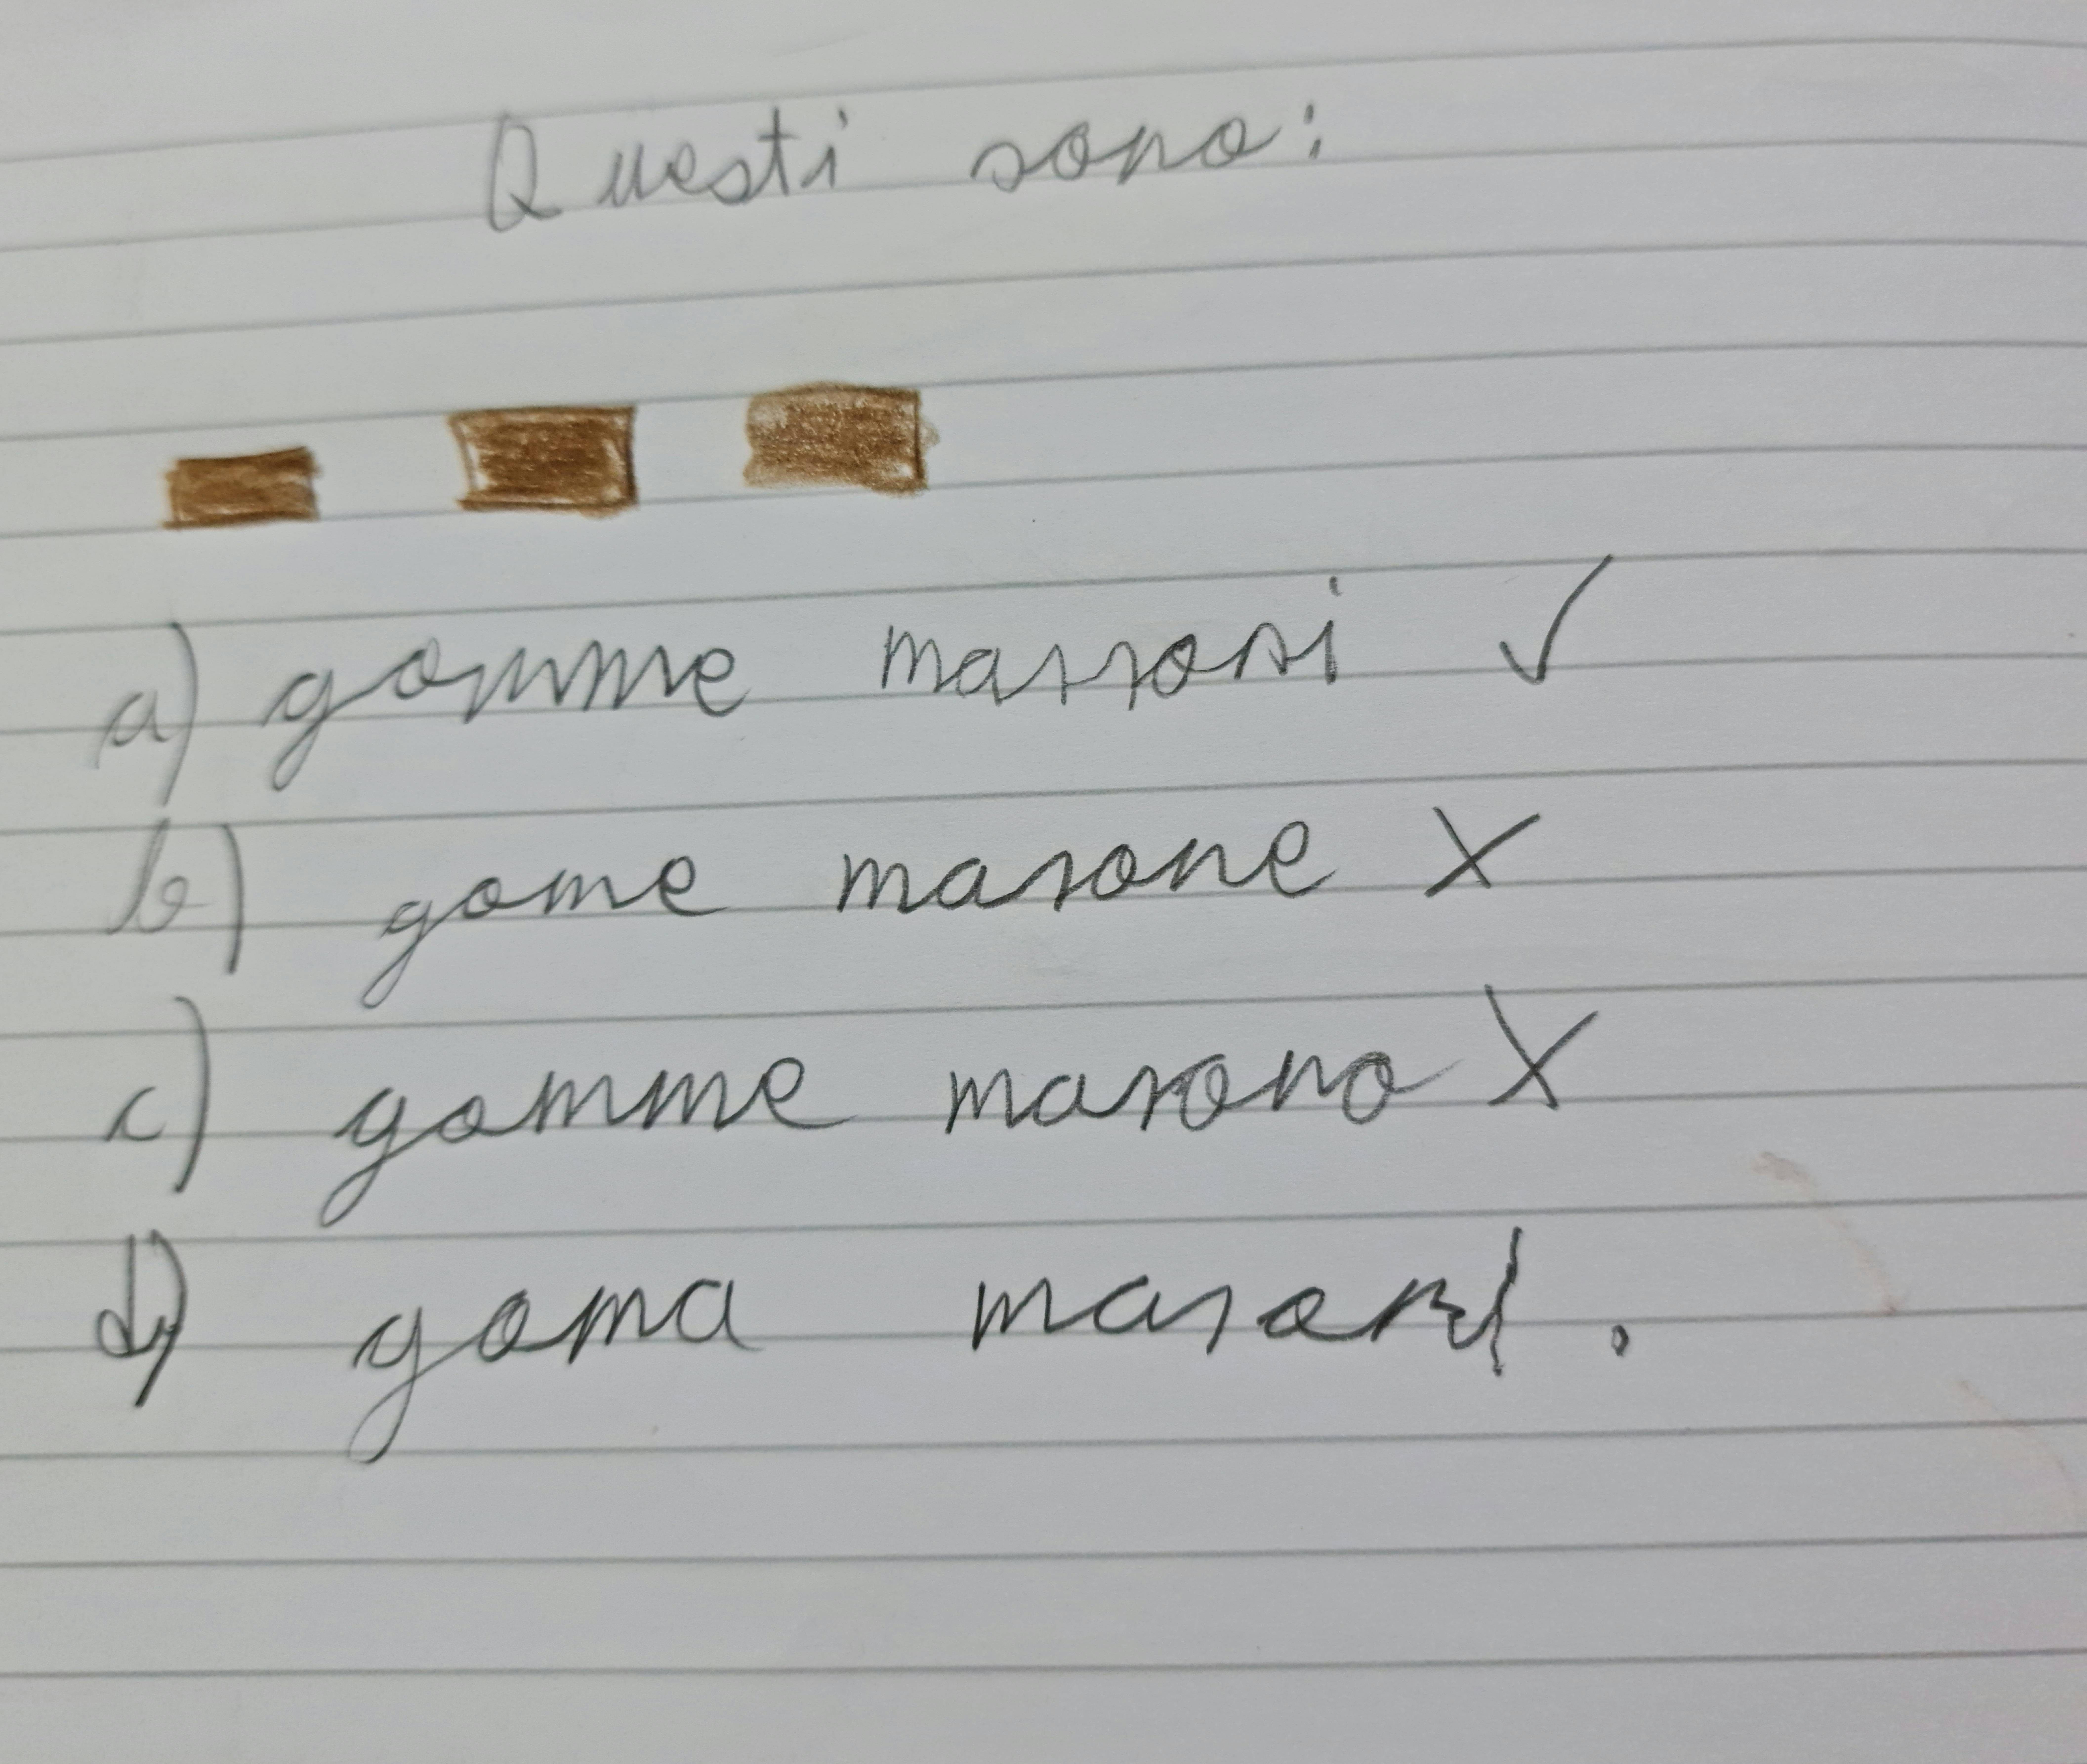 Questi sono:
a) gomme marroni ✓
b) gome marone X
c) gomme marono X
d) goma maroni .